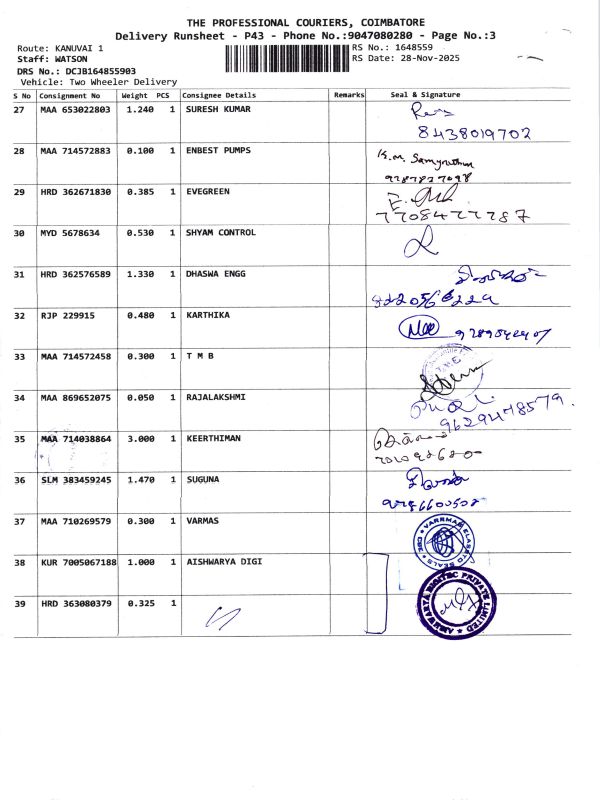 THE PROFESSIONAL COURIERS, COIMBATORE
Delivery Runsheet - P43 - Phone No.:9047080280 - Page No.:3
Route: KANUVAI 1 RS No.: 1648559
Staff: WATSON RS Date: 28-Nov-2025
DRS No.: DCJB164855903
Vehicle: Two Wheeler Delivery
S No Consignment No Weight PCS Consignee Details Remarks Seal & Signature
27 MAA 653022803 1.240 1 SURESH KUMAR
8438019702
28 MAA 714572883 0.100 1 ENBEST PUMPS
29 HRD 362671830 0.385 1 EVEGREEN
7708477787
30 MYD 5678634 0.530 1 SHYAM CONTROL
31 HRD 362576589 1.330 1 DHASWA ENGG
32 RJP 229915 0.480 1 KARTHIKA
33 MAA 714572458 0.300 1 T M B
34 MAA 869652075 0.050 1 RAJALAKSHMI
9629478579
35 MAA 714038864 3.000 1 KEERTHIMAN
36 SLM 383459245 1.470 1 SUGUNA
37 MAA 710269579 0.300 1 VARMAS
38 KUR 7005067188 1.000 1 AISHWARYA DIGI
AISHWARYA DIGITEC PRIVATE LIMITED
39 HRD 363080379 0.325 1